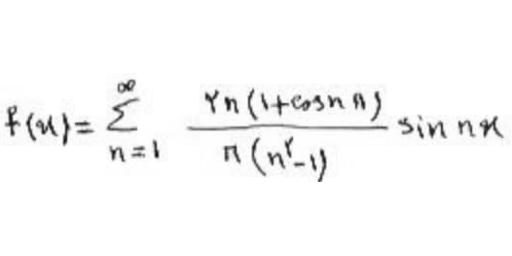 f(x) = \sum_{n=1}^{\infty} \frac{۲n(1+cosnπ)}{π(n^۲-1)} sin nx